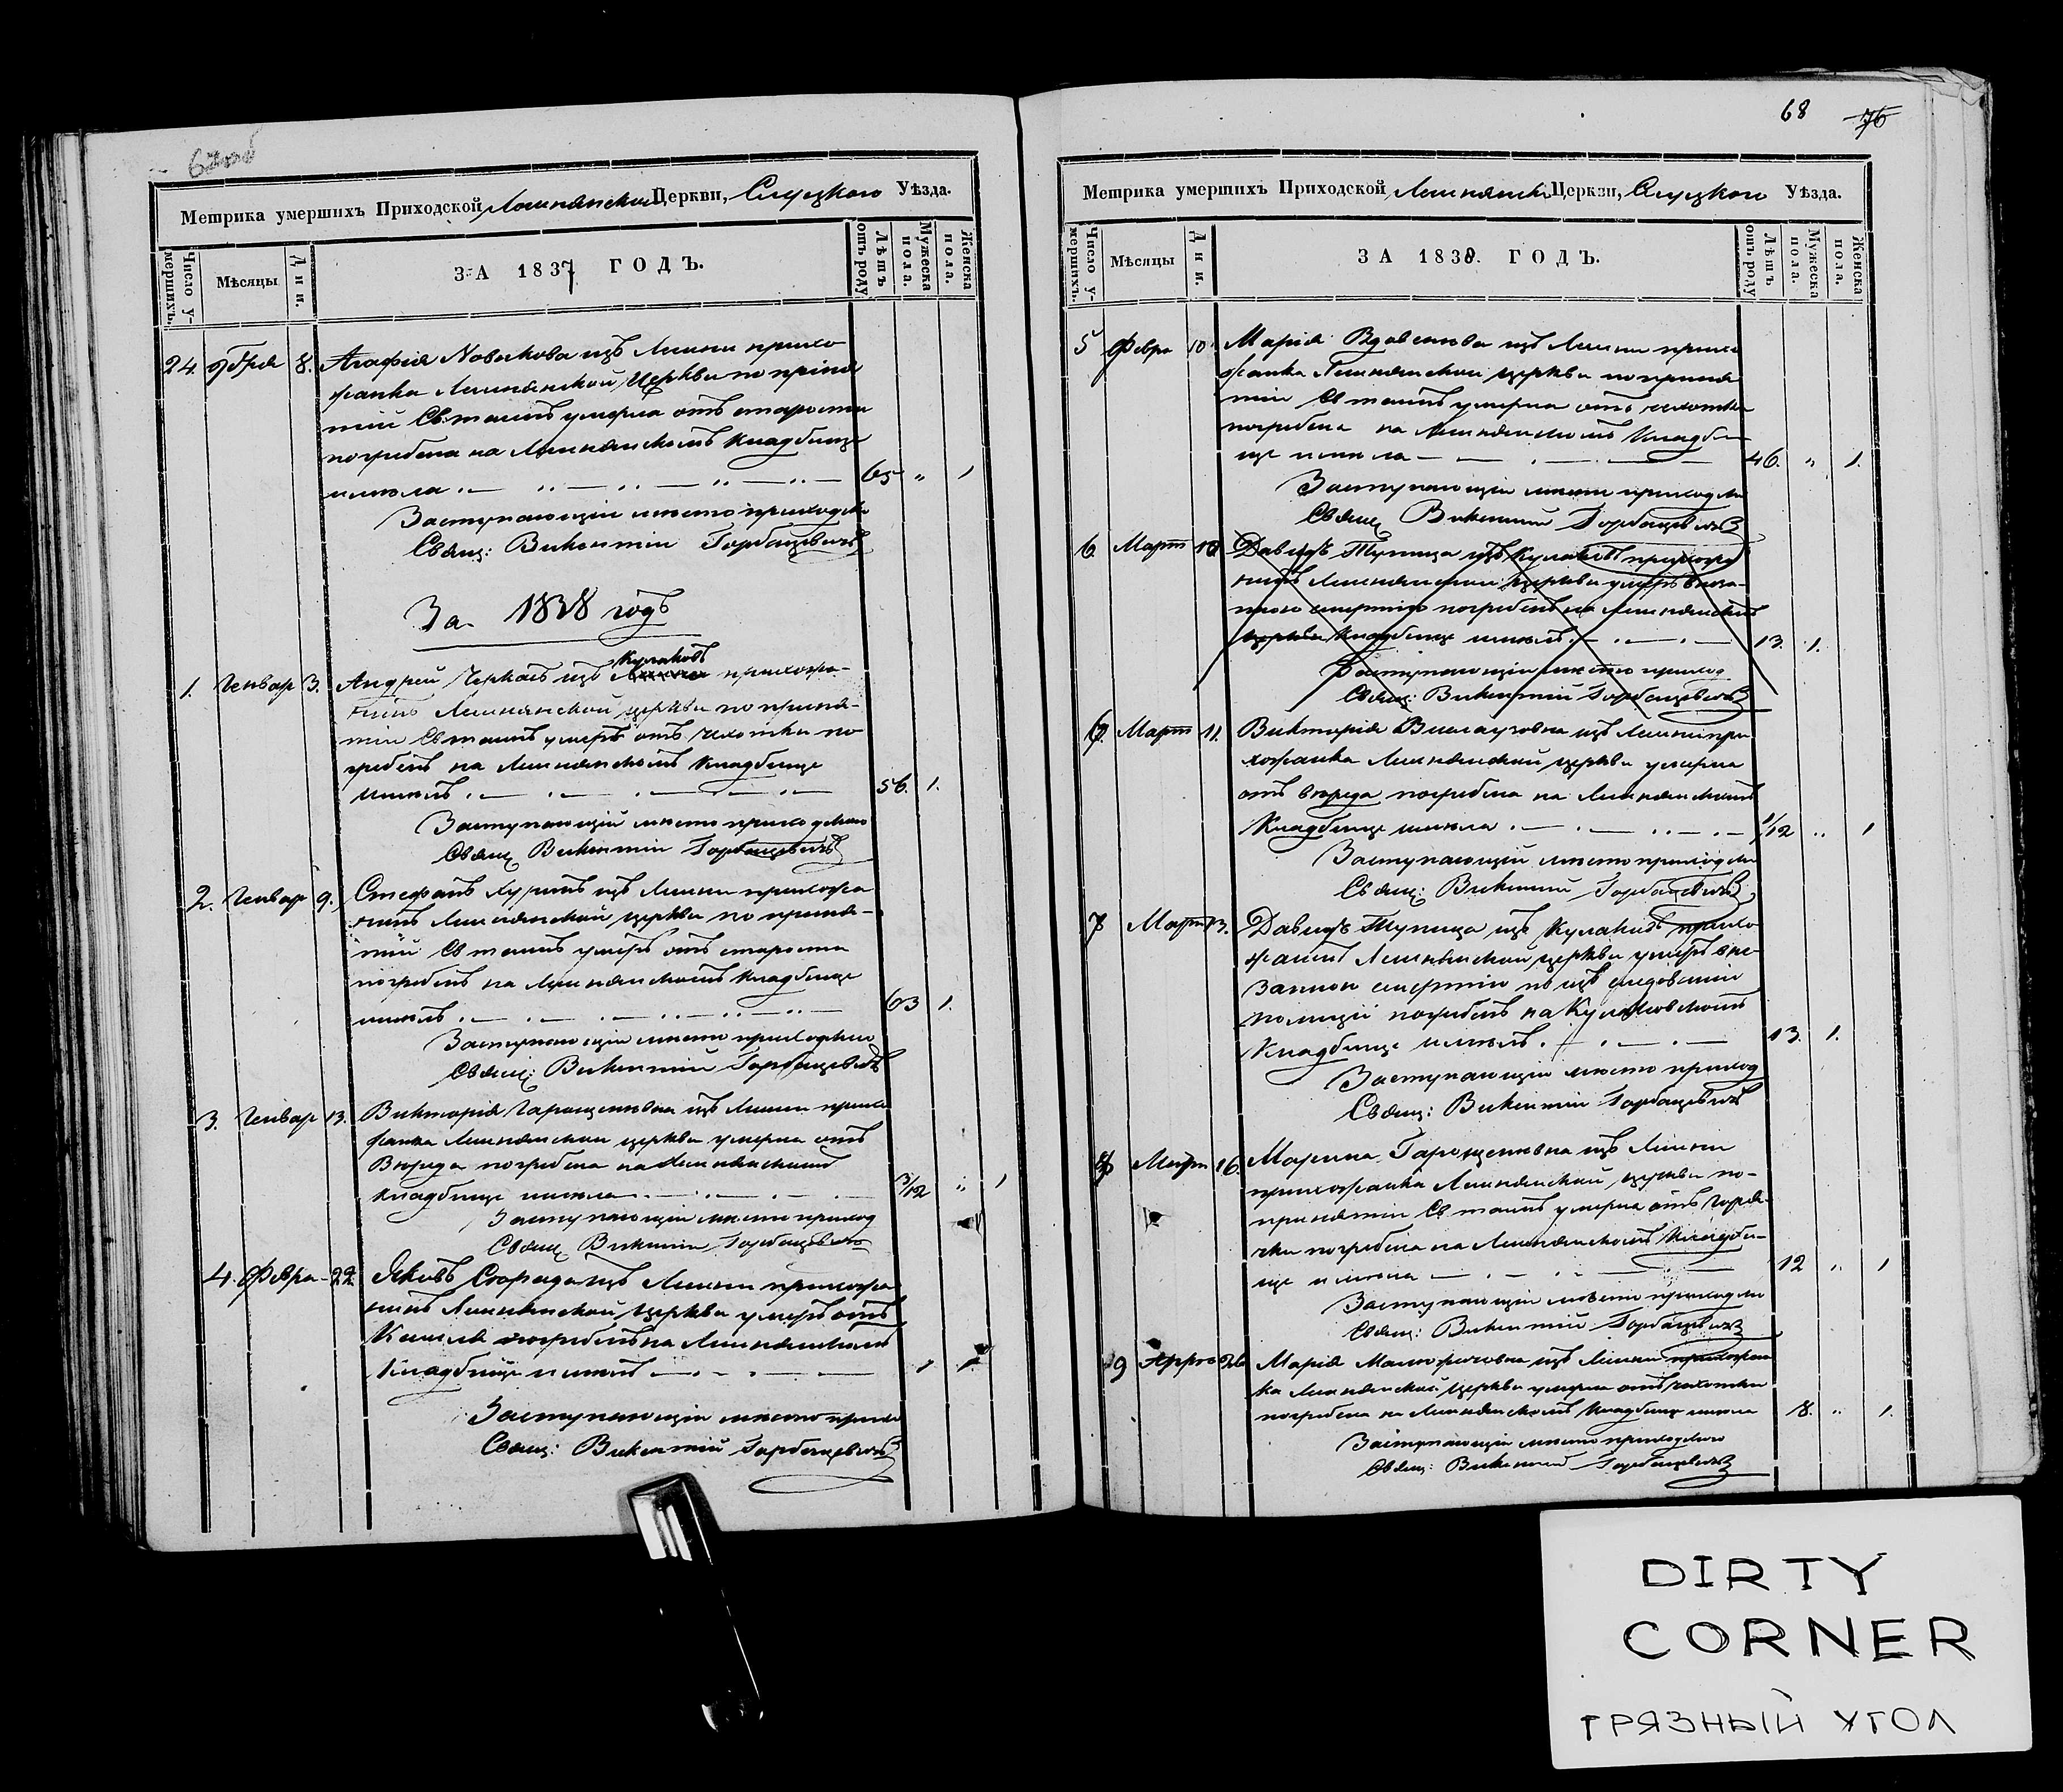 Метрика умершихъ Приходской Лешнянской Церкви, Слуцкого Уѣзда.
Число умершихъ. Мѣсяцы Дни. ЗА 1837 ГОДЪ. Лѣтъ отъ роду Мужеска пола. Женска пола.
24. 8. Агафія Новикова изъ Лешни прихо
жанка Лешнянской Церкви по приня
тіи Св. таинъ умерла отъ старости
погребена на Лешнянскомъ кладбище
имѣла 65 „ 1
Заступающій мѣсто приходско
Свящ: Викентій Горбацевичъ
За 1838 годъ
1. Генвар 3. Андрей Черкасъ изъ Кулаковъ прихожа-
нинъ Лешнянской церкви по приня-
тіи Св таинъ умеръ отъ чахотки по
гребенъ на Лешнянскомъ кладбище
имѣлъ 56. 1.
Заступающій мѣсто приходского
Свящ Викентій Горбацевичъ
2. Генвар 9. Стефанъ изъ Лешни прихожа
нинъ Лешнянской церкви по приня-
тіи Св таинъ умеръ отъ старости
погребенъ на Лешнянскомъ кладбище
имѣлъ 63 1.
Заступающій мѣсто приходского
Свящ: Викентій Горбацевичъ
3. Генвар 13. Викторія Гарощенковна изъ Лешни прихо
жанка Лешнянской церкви умерла отъ
Вереда погребена на Лешнянскомъ
кладбище имѣла 3/12 „ 1
Заступающій мѣсто приход
Свящ Викентій Горбацевичъ
4. Февра 22. Яковъ изъ Лешни прихожа
нинъ Лешнянской церкви умеръ отъ
Кашля погребенъ на Лешнянскомъ
Кладбище имѣлъ 1 1
Заступающій мѣсто прихо
Свящ: Викентій Горбацевичъ
68 76
Метрика умершихъ Приходской Лешнянской Церкви, Слуцкого Уѣзда.
Число умершихъ. Мѣсяцы Дни. ЗА 1838. ГОДЪ. Лѣтъ отъ роду Мужеска пола. Женска пола.
5 Февра 10 Марія изъ Лешни прихо
жанка Лешнянской церкви по приня
тіи Св таинъ умерла отъ чахотки
погребена на Лешнянскомъ Кладби
ще имѣла 46. „ 1.
Заступающій мѣсто приходско
Свящ Викентій Горбацевичъ
6 Март Давидъ Тупица изъ Кулаковъ прихожа
нинъ Лешнянской церкви умеръ внеза-
пною смертію погребенъ на Лешнянскомъ
церкви Кладбище имѣлъ 13. 1.
Заступающій мѣсто приход
Свящ: Викентій Горбацевичъ
6. Март 11. Викторія изъ Лешни при
хожанка Лешнянской церкви умерла
отъ вереда погребена на Лешнянскомъ
Кладбище имѣла 1/12 „ 1
Заступающій мѣсто приходско
Свящ: Викентій Горбацевичъ
7 Март 13. Давидъ Тупица изъ Кулаковъ прихо
жанинъ Лешнянской церкви умеръ вне-
запною смертію по изслѣдованіи
полиціи погребенъ на Кулаковскомъ
Кладбище имѣлъ 13. 1.
Заступающій мѣсто приход
Свящ: Викентій Горбацевичъ
8 Март 16. Марина Гарощенковна изъ Лешни
прихожанка Лешнянской церкви по-
принятіи Св таинъ умерла отъ горя-
чки погребена на Лешнянскомъ Кладби-
ще имѣла 12 „ 1
Заступающій мѣсто приходско
Свящ: Викентій Горбацевичъ
9 26 Марія изъ Лешни прихожан
ка Лешнянской церкви умерла отъ чахотки
погребена на Лешнянскомъ Кладбище имѣла 18. „ 1.
Заступающій мѣсто приходского
Свящ: Викентій Горбацевичъ
DIRTY
CORNER
ГРЯЗНЫЙ УГОЛ